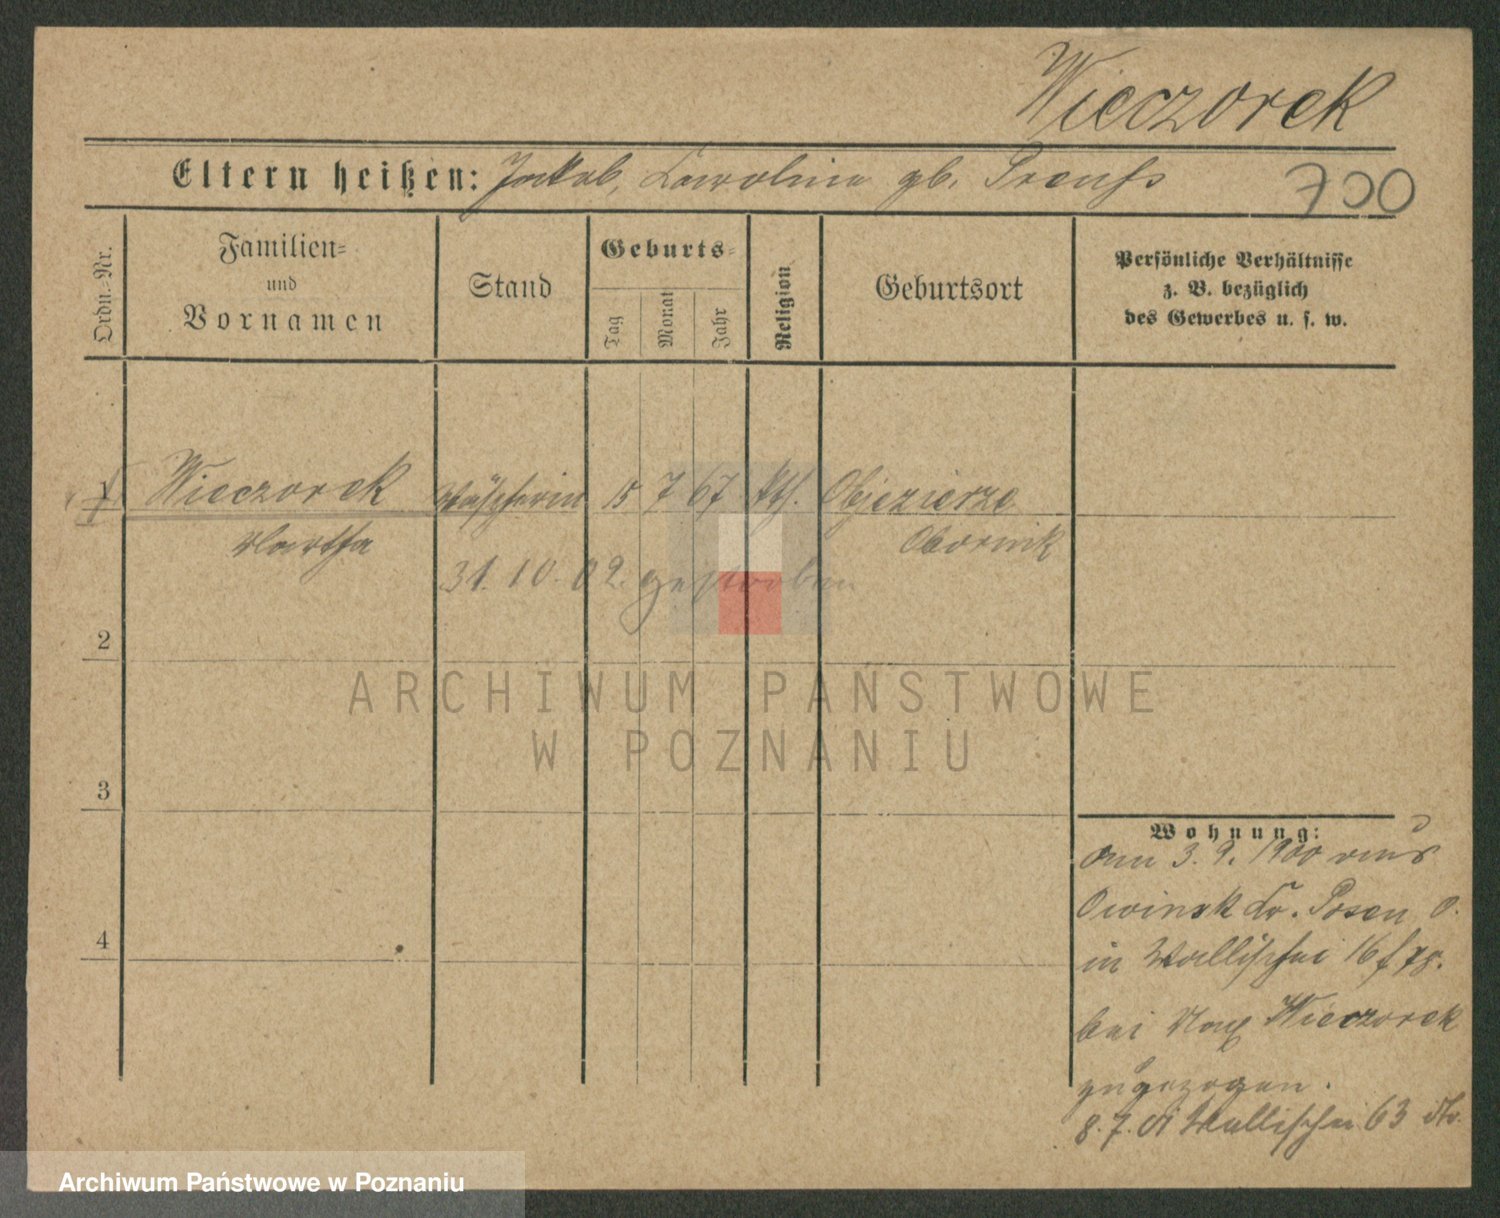 Wieczorek
Eltern heißen: Jakob, Karolina gb. Preuß
700
Ordn.-Nr.
Familien-
und
Vornamen
Stand
Geburts-
Tag
Monat
Jahr
Religion
Geburtsort
Persönliche Verhältnisse
z. B. bezüglich
des Gewerbes u. s. w.
1 Wieczorek Wäscherin 15 7 67 kth. Objezierze
Martha Obornik
31.10.02. gestorben
2
ARCHIWUM PAŃSTWOWE
W POZNANIU
3
4
Wohnung:
am 3.9.1900 aus
Owinsk Kr. Posen O.
in Wallischei 16
bei Max Wieczorek
zugezogen.
8.7.01 Wallischei 63
Archiwum Państwowe w Poznaniu